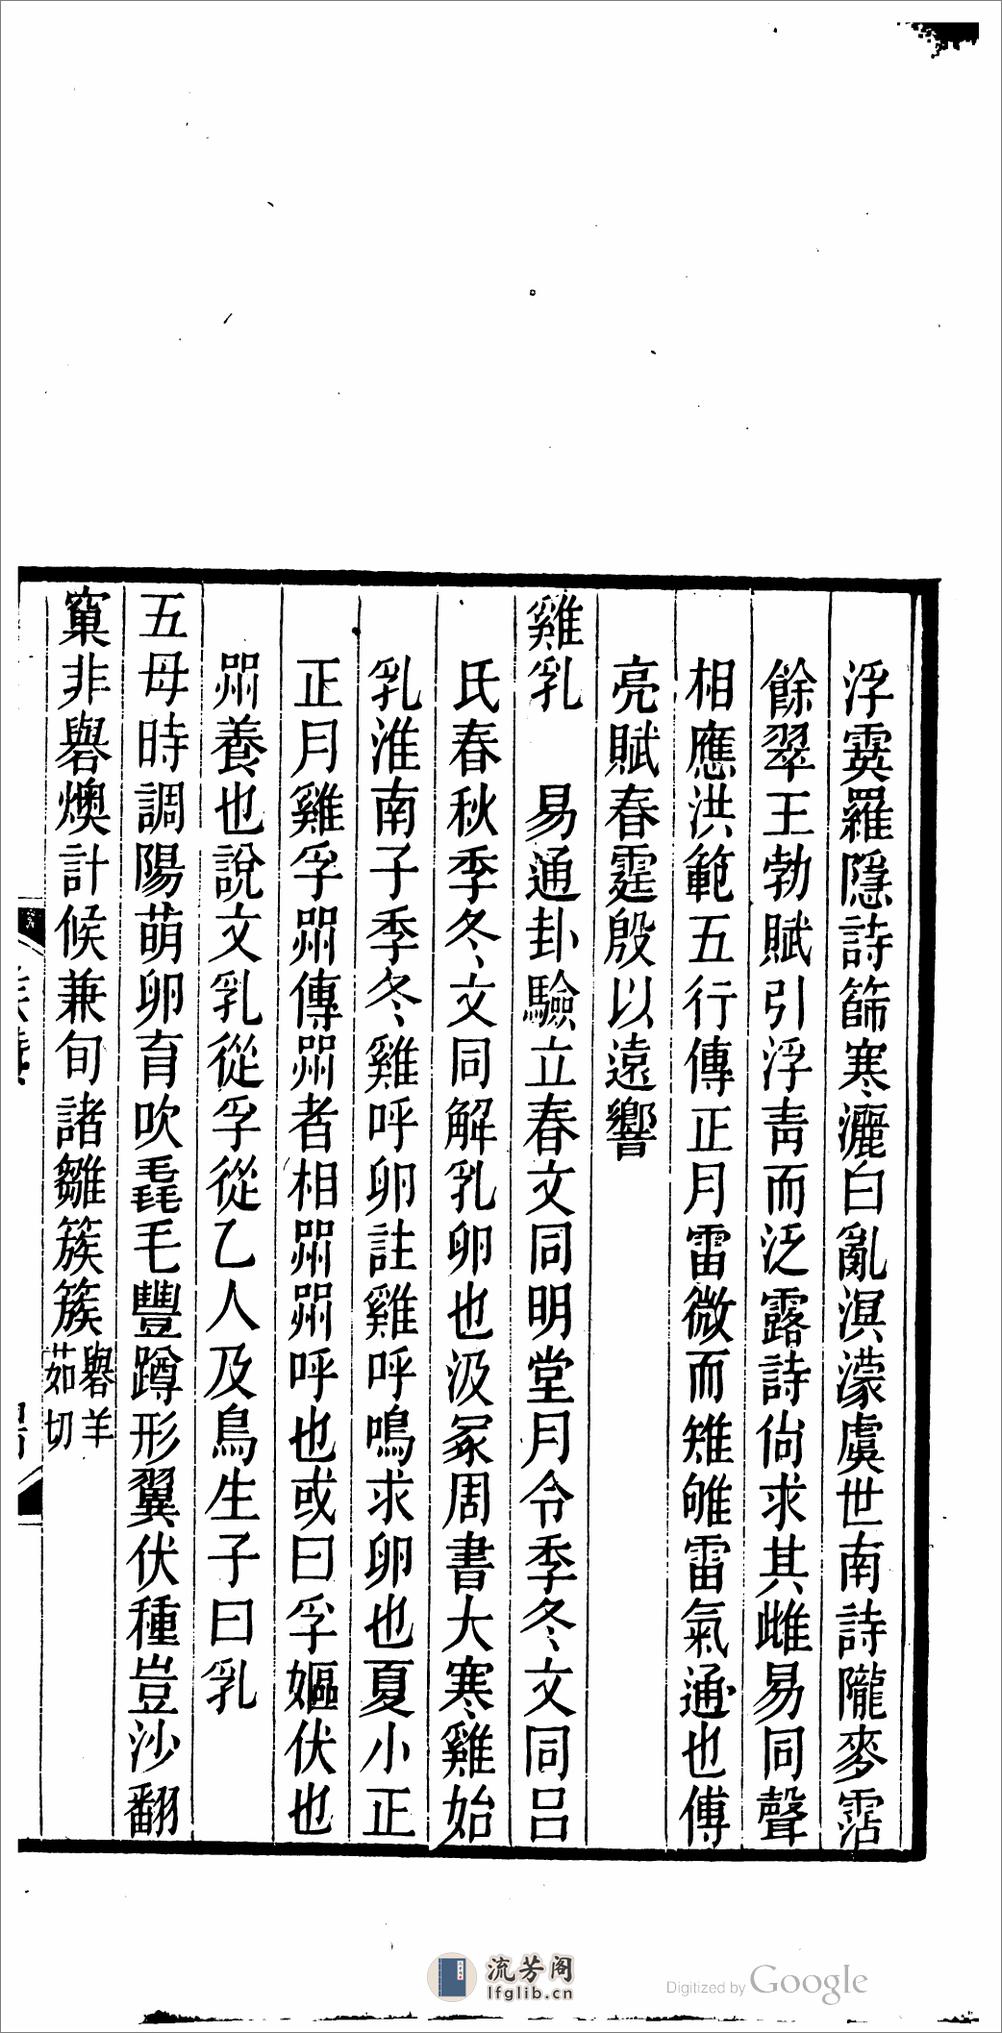 浮霙羅隱詩篩寒灑白亂溟濛虞世南詩隴麥霑
餘翠王勃賦引浮青而泛露詩尙求其雌易同聲
相應洪範五行傳正月雷微而雉雊雷氣通也傅
亮賦春霆殷以遠響
雞乳　易通卦驗立春文同明堂月令季冬文同呂
氏春秋季冬文同解乳卵也汲冢周書大寒雞始
乳淮南子季冬雞呼卵註雞呼鳴求卵也夏小正
正月雞孚粥傳粥者相粥粥呼也或曰孚嫗伏也
粥養也說文乳從孚從乙人及鳥生子曰乳
五母時調陽萌卵育吹毳毛豐蹲形翼伏種豈沙翻
窠非礜燠計候兼旬諸雛簇簇礜羊
茹切
流芳阁
lfglib.cn
Digitized by Google